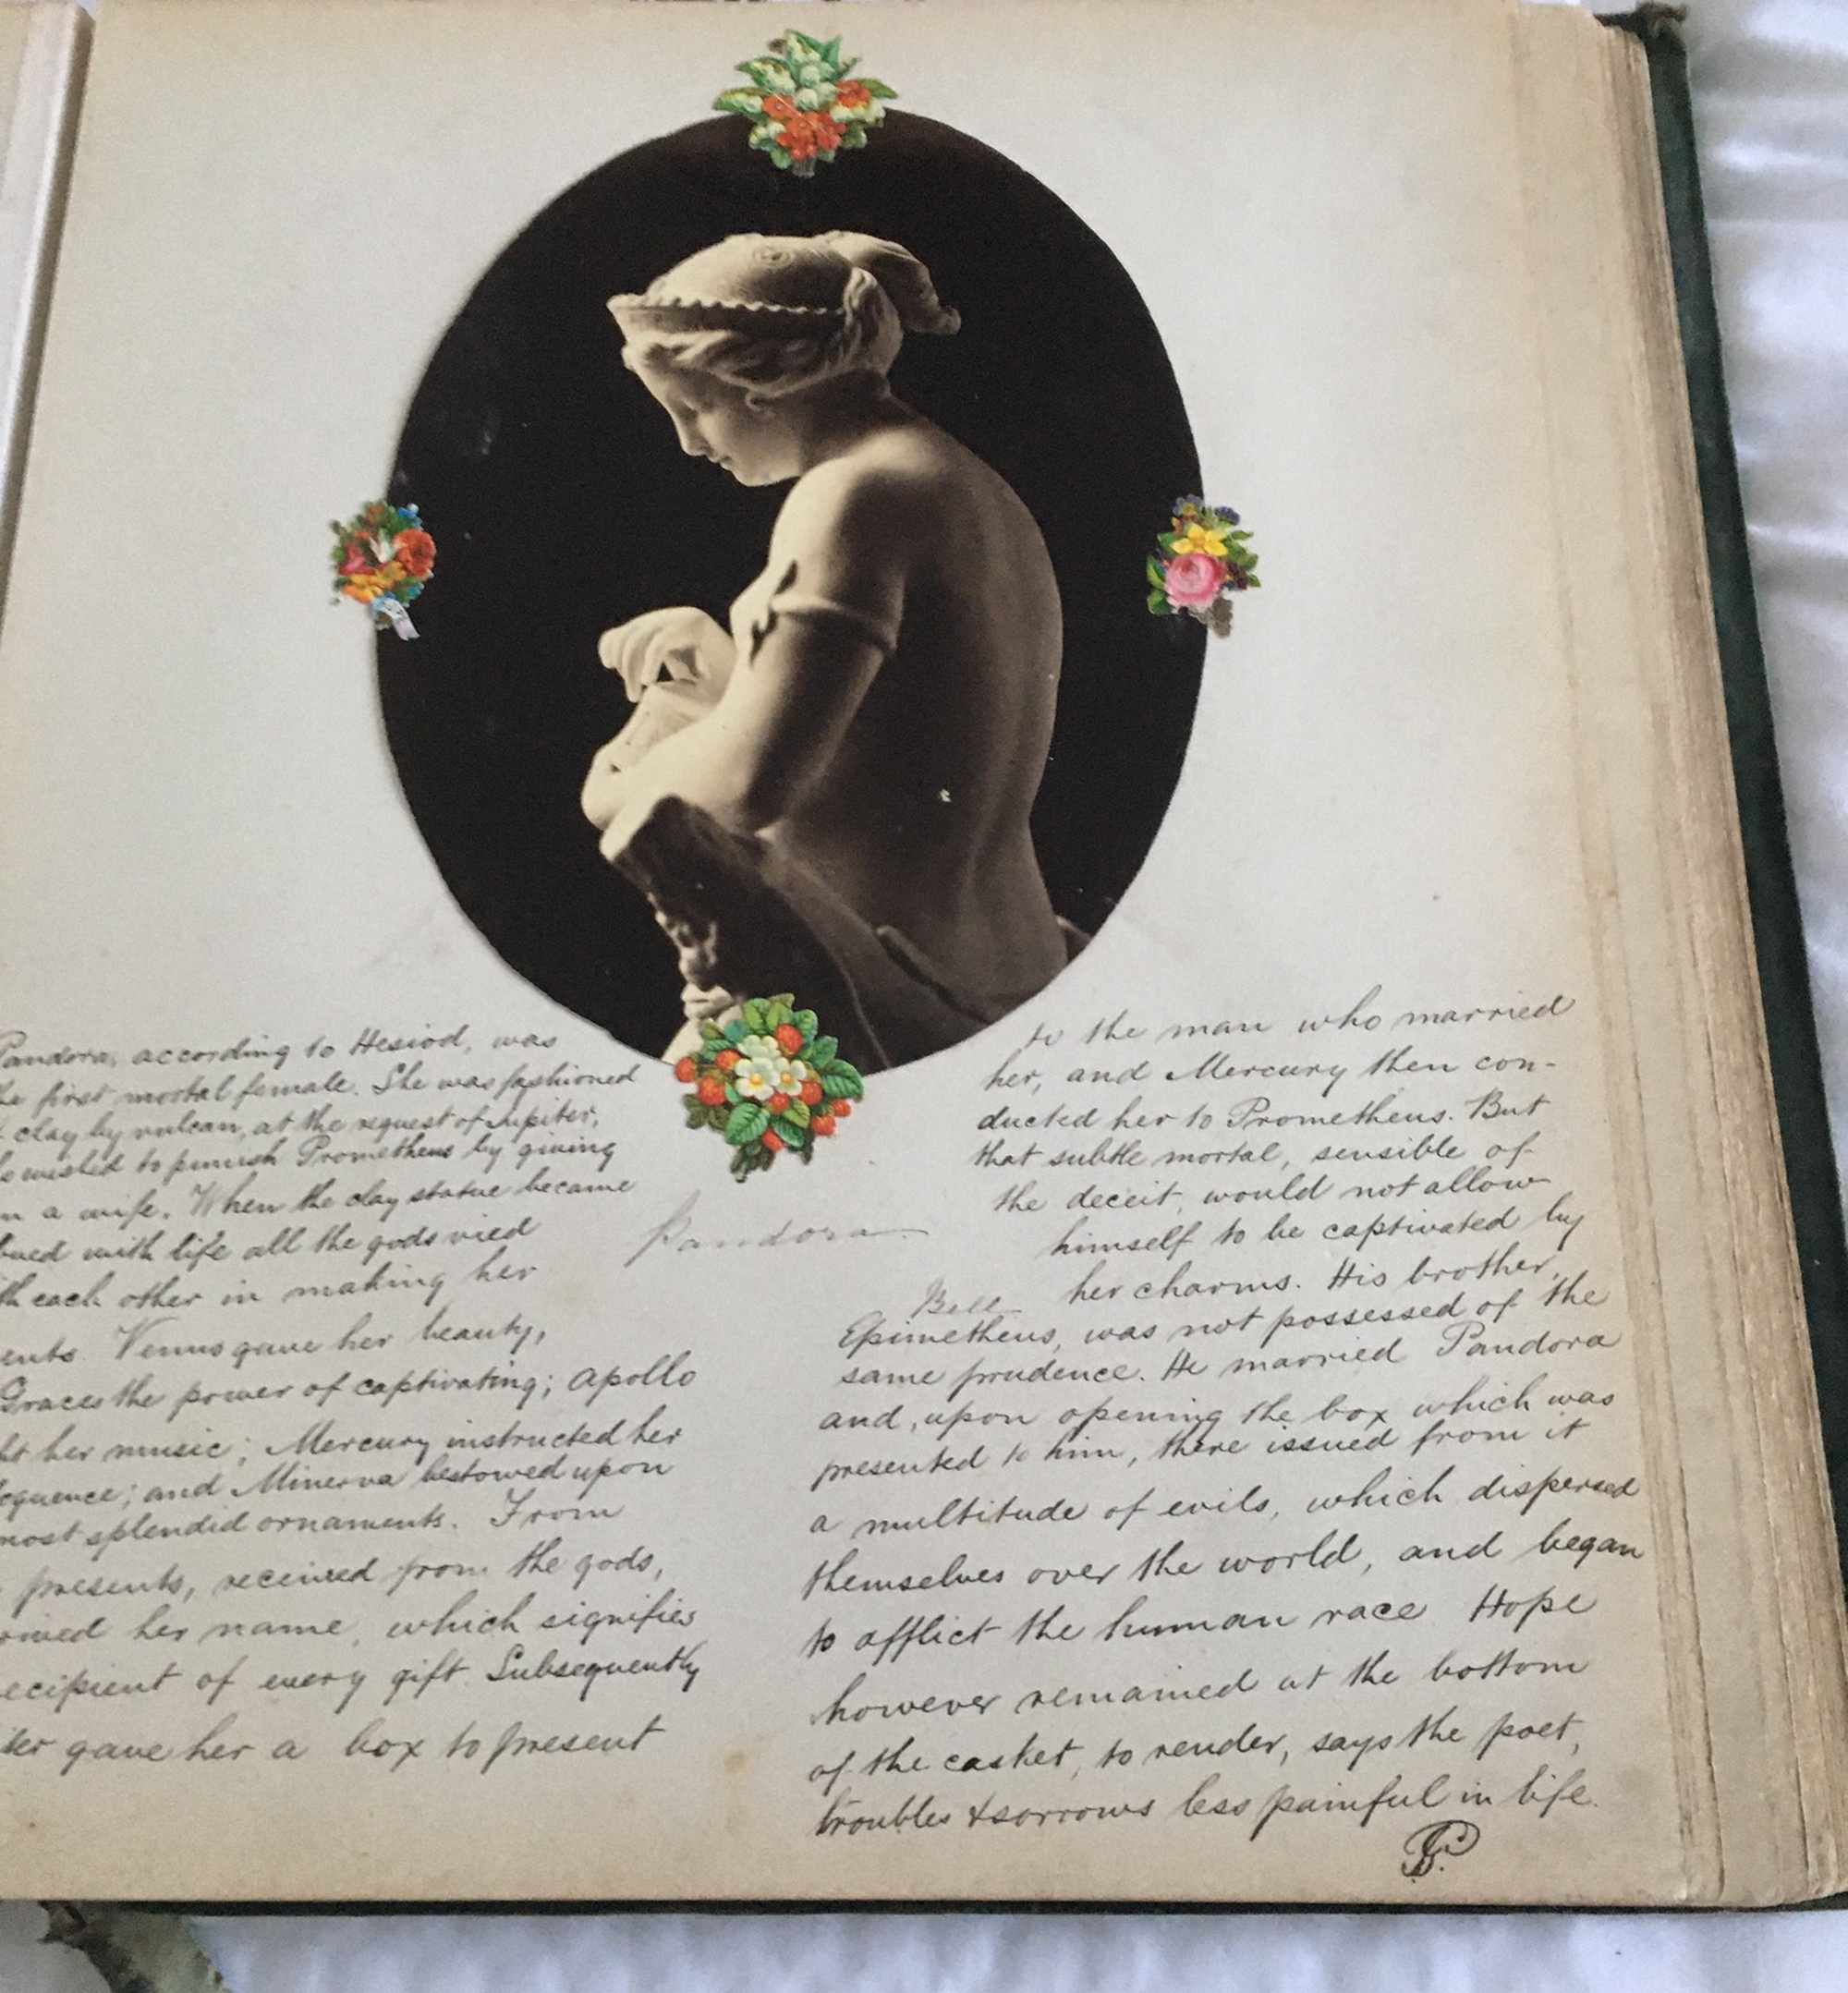 Pandora, according to Hesiod, was
first mortal female. She was fashioned
clay by vulcan, at the request of Jupiter,
wished to punish Prometheus by giving
a wife. When the clay statue became
with life all the gods vied
each other in making her
Venus gave her beauty,
Graces the power of captivating; Apollo
her music; Mercury instructed her
and Minerva bestowed upon
most splendid ornaments. From
presents, received from the gods,
her name, which signifies
of every gift. Subsequently
gave her a box to present
Pandora.
Bell
to the man who married
her, and Mercury then con-
ducted her to Prometheus. But
that subtle mortal, sensible of
the deceit, would not allow
himself to be captivated by
her charms. His brother,
Epimetheus, was not possessed of the
same prudence. He married Pandora
and, upon opening the box which was
presented to him, there issued from it
a multitude of evils, which dispersed
themselves over the world, and began
to afflict the human race Hope
however remained at the bottom
of the casket, to render, says the poet,
troubles & sorrows less painful in life.